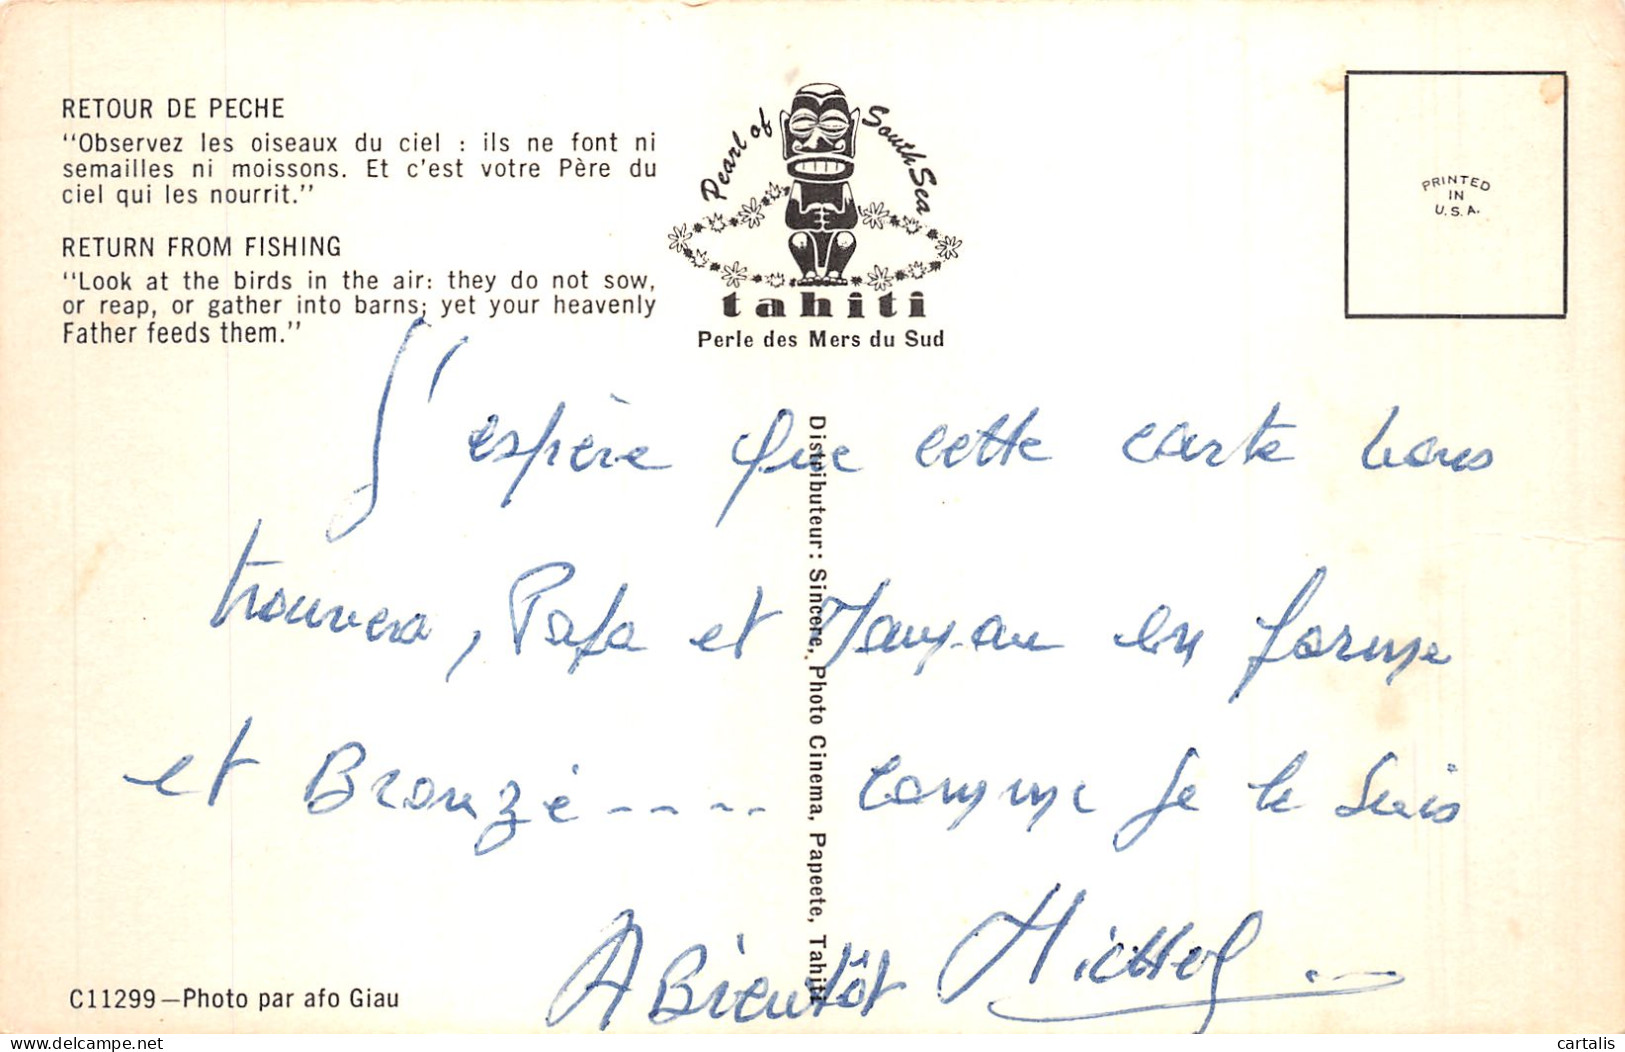 RETOUR DE PECHE
"Observez les oiseaux du ciel : ils ne font ni
semailles ni moissons. Et c'est votre Père du
ciel qui les nourrit."
RETURN FROM FISHING
"Look at the birds in the air: they do not sow,
or reap, or gather into barns; yet your heavenly
Father feeds them."
Pearl of South Sea
tahiti
Perle des Mers du Sud
PRINTED
IN
U.S.A.
Distributeur: Sincere, Photo Cinema, Papeete, Tahiti
J'espère que cette carte vous
trouvera, Papa et Maman en forme
et Bronzé---- comme je le suis
A Bientôt Michel
C11299—Photo par afo Giau
cartalis